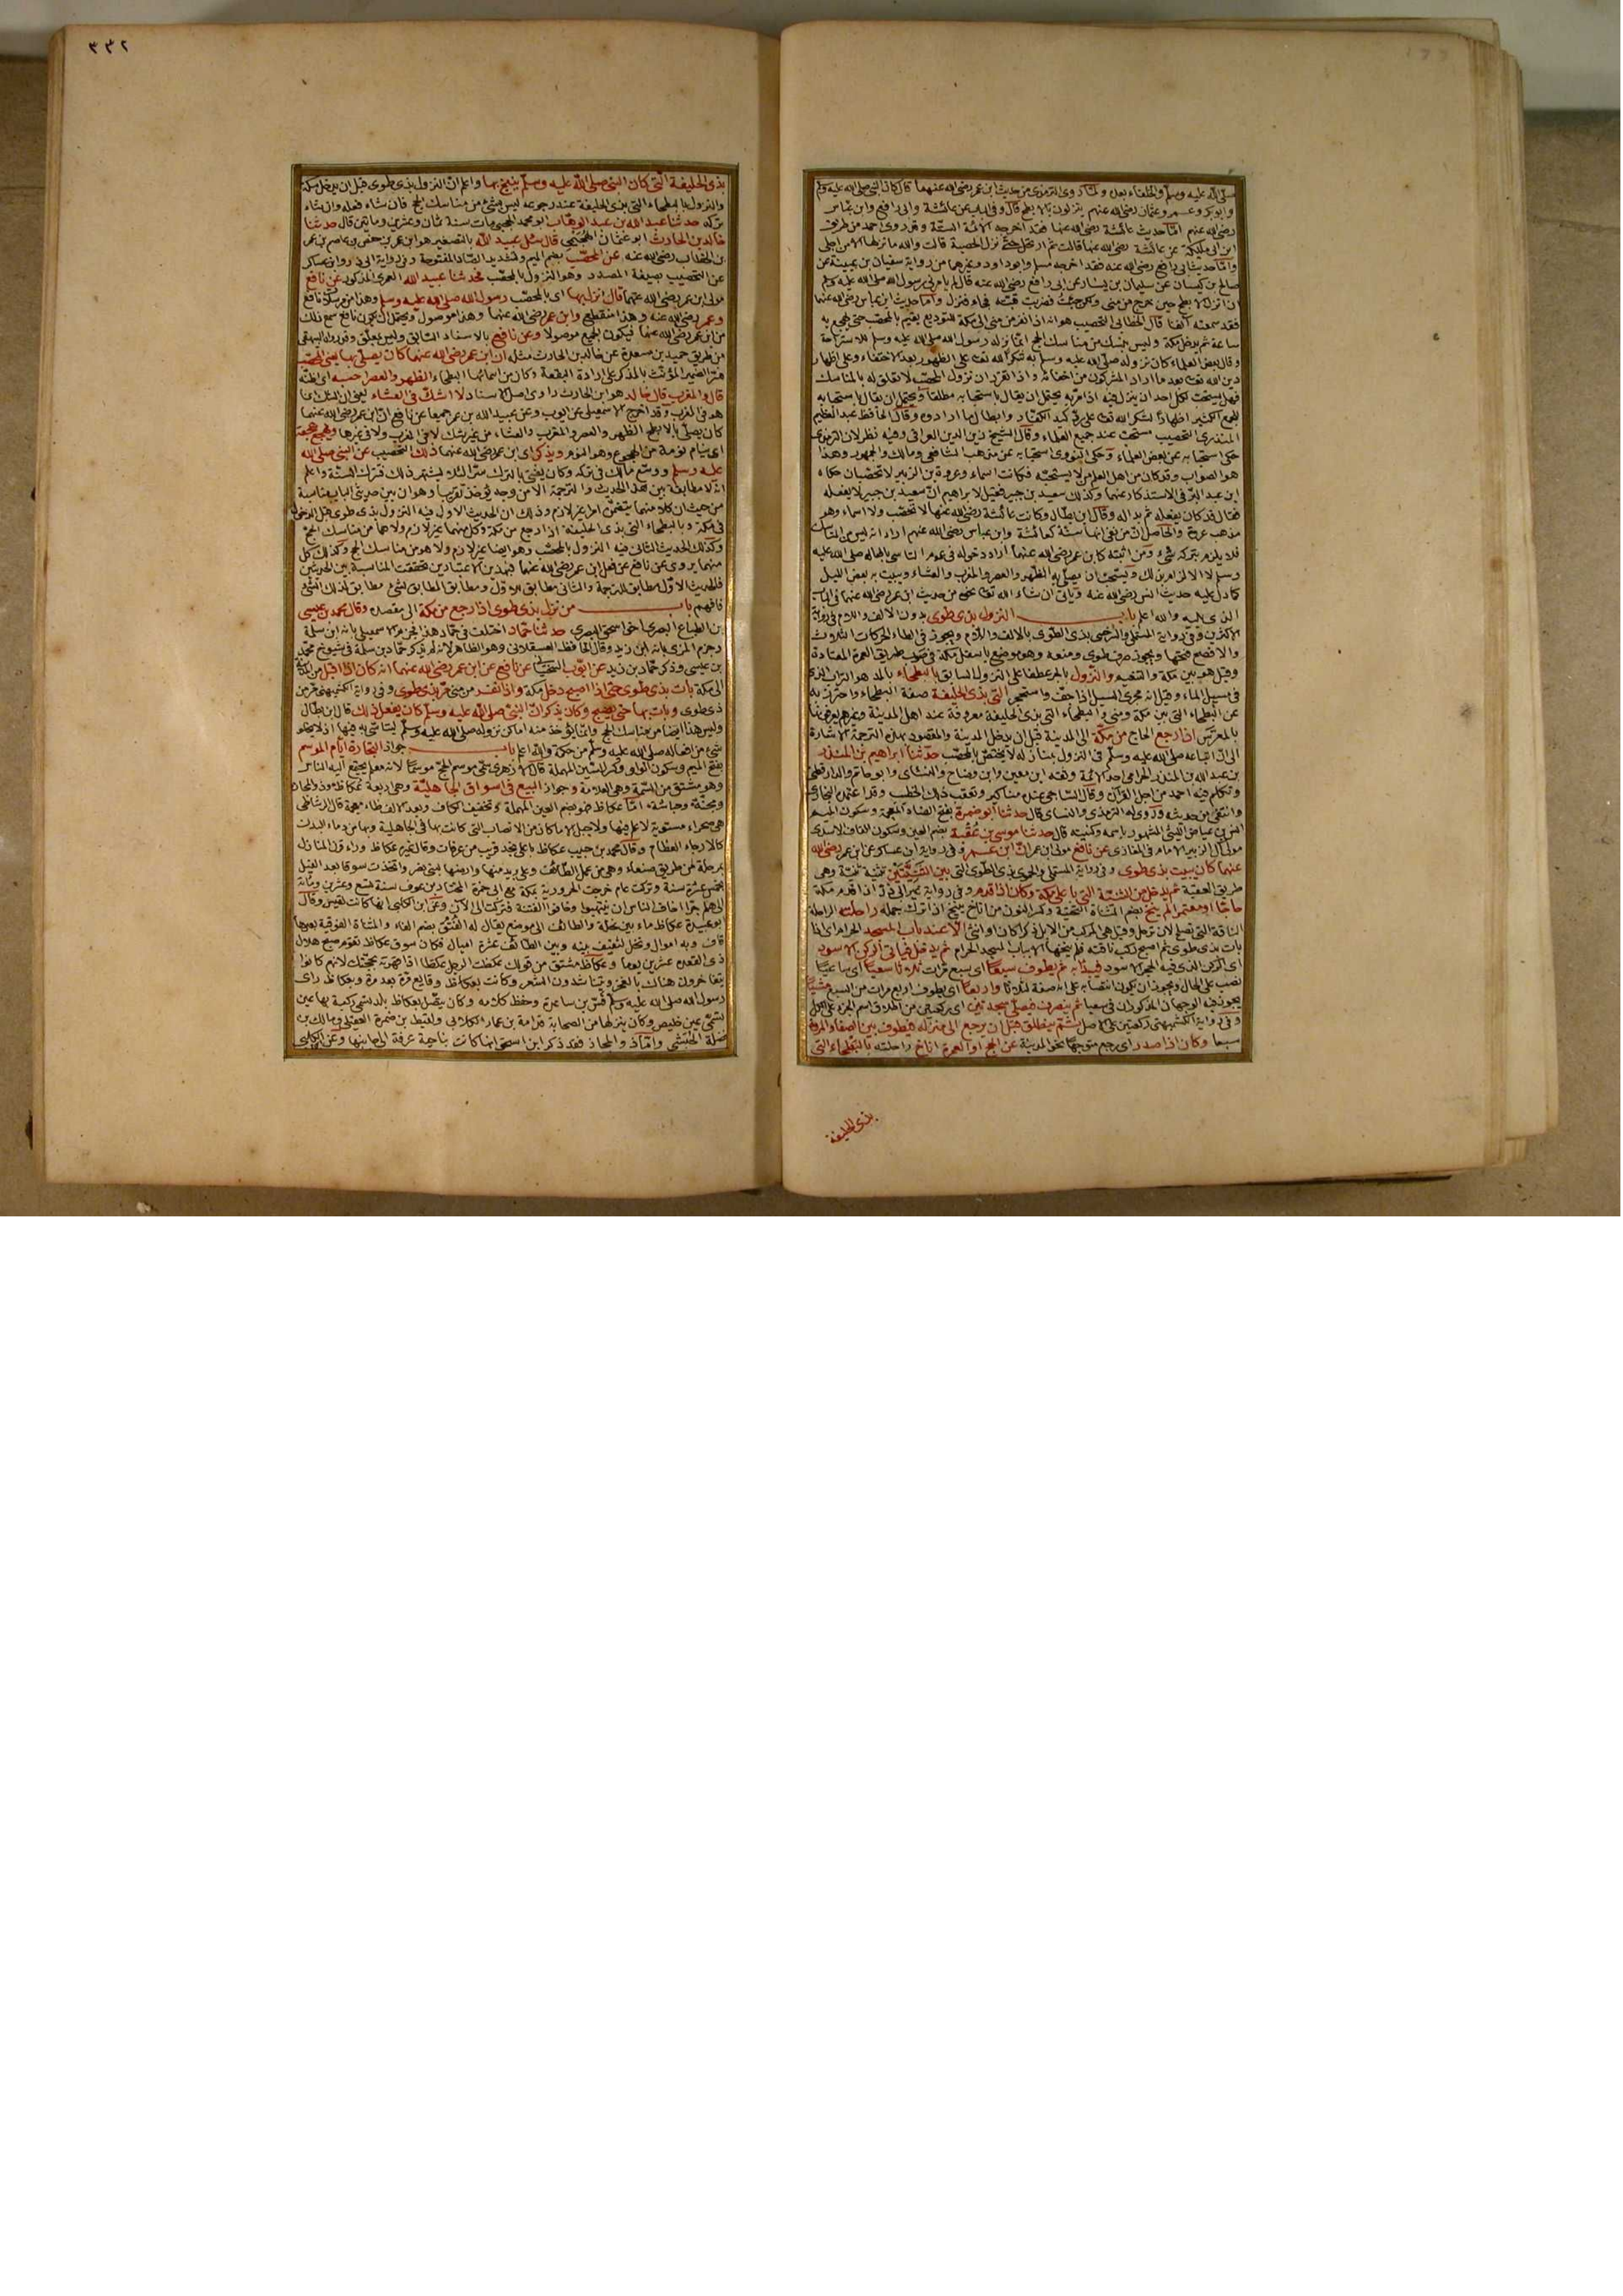 صلى الله عليه وسلم والخلفاء بعده ولما روى الترمذي من حديث ابن عمر رضي الله عنهما قال كان النبي صلى الله عليه وسلم
وابو بكر وعمر وعثمان رضي الله عنهم ينزلون بالابطح قال وفي الباب عن عائشة وابي رافع وابن عباس
رضي الله عنهم اما حديث عائشة رضي الله عنها فقد اخرجه الائمة الستة وقد روى احمد من طريق
ابن ابي مليكة عن عائشة رضي الله عنها قالت ثم ارتحل حتى نزل الحصبة قالت والله ما نزلها الا من اجلي
واما حديث ابي رافع رضي الله عنه فقد اخرجه مسلم وابو داود وغيرهما من رواية سفيان بن عيينة عن
صالح بن كيسان عن سليمان بن يسار عن ابي رافع رضي الله عنه قال لم يامرني رسول الله صلى الله عليه وسلم
ان انزل الابطح حين خرج من منى ولكن جئت فضربت قبته فجاء فنزل واما حديث ابن عباس رضي الله عنهما
فقد سمعته آنفا قال الخطابي التحصيب هو انه اذا نفر من منى الى مكة للتوديع يقيم بالمحصب حتى يهجع به
ساعة ثم يدخل مكة وليس بنسك من مناسك الحج انما نزله رسول الله صلى الله عليه وسلم للاستراحة
وقال بعض العلماء كان نزوله صلى الله عليه وسلم به شكرا لله تعالى على الظهور بعد الاختفاء وعلى اظهار
دين الله تعالى بعد ما اراد المشركون من اخفائه واذا تقرر ان نزول المحصب لا تعلق له بالمناسك
فهل يستحب لكل احد ان ينزل فيه اذا مر به يحتمل ان يقال باستحبابه مطلقا ويحتمل ان يقال باستحبابه
للجمع الكثير اظهارا لشكر الله تعالى على رد كيد الكفار وابطال ما ارادوه وقال الحافظ عبد العظيم
المنذري التحصيب مستحب عند جميع العلماء وقال الشيخ زين الدين العراقي وفيه نظر لان الترمذي
حكى استحبابه عن بعض العلماء وحكى النووي استحبابه عن مذهب الشافعي ومالك والجمهور وهذا
هو الصواب وقد كان من اهل العلم من لا يستحبه فكانت اسماء وعروة بن الزبير لا تحصبان حكاه
ابن عبد البر في الاستذكار عنهما وكذلك سعيد بن جبير فقيل لابراهيم ان سعيد بن جبير لا يفعله
فقال قد كان يفعله ثم بدا له وقال ابن بطال وكانت عائشة رضي الله عنها لا تحصب ولا اسماء وهو
مذهب عروة والحاصل ان من نفى انها سنة كعائشة وابن عباس رضي الله عنهم اراد انه ليس من المناسك
فلا يلزم بتركه شيء ومن اثبته كابن عمر رضي الله عنهما اراد دخوله في عموم التاسي بافعاله صلى الله عليه
وسلم لا الالزام بذلك ويستحب ان يصلي به الظهر والعصر والمغرب والعشاء ويبيت به بعض الليل
كما دل عليه حديث انس رضي الله عنه وياتي ان شاء الله تعالى نحوه من حديث ابن عمر رضي الله عنهما في الباب
الذي يليه والله اعلم باب النزول بذي طوى بدون الالف واللام في رواية
الاكثرين وفي رواية المستملي والسرخسي بذي الطوى بالالف واللام ويجوز في الطاء الحركات الثلاث
والافصح فتحها ويجوز صرف طوى ومنعه وهو موضع باسفل مكة في صوب طريق العمرة المعتادة
وقيل هو بين مكة والتنعيم والنزول بالجر عطفا على النزول السابق بالبطحاء بالمد هو التراب الذي
في مسيل الماء وقيل انه مجرى السيل اذا جف واستحجر التي بذي الحليفة صفة البطحاء واحترز به
عن البطحاء التي بين مكة ومنى والبطحاء التي بذي الحليفة معروفة عند اهل المدينة وغيرهم
بالمعرس اذا رجع الحاج من مكة الى المدينة قبل ان يدخل المدينة والمقصود بهذه الترجمة الاشارة
الى ان اتباعه صلى الله عليه وسلم في النزول بمنازله لا يختص بالمحصب حدثنا ابراهيم بن المنذر
بن عبد الله بن المنذر الحزامي احد الائمة وثقه ابن معين وابن وضاح والنسائي وابو حاتم والدارقطني
وتكلم فيه احمد من اجل القرآن وقال الساجي عنده مناكير وتعقب ذلك الخطيب وقد اعتمده البخاري
وانتقى من حديثه وروى له الترمذي والنسائي قال حدثنا ابو ضمرة بفتح الضاد المعجمة وسكون الميم
انس بن عياض الليثي المشهور باسمه وكنيته قال حدثنا موسى بن عقبة بضم العين وسكون القاف الاسدي
مولى آل الزبير الامام في المغازي عن نافع مولى ابن عمر ان ابن عمر وفي رواية ابن عساكر عن ابن عمر رضي الله
عنهما كان يبيت بذي طوى وفي رواية المستملي والحموي بذي الطوى التي بين الثنيتين تثنية ثنية وهي
طريق العقبة ثم يدخل من الثنية التي باعلى مكة وكان اذا قدم وفي رواية غير ابي ذر اذا قدم مكة
حاجا او معتمرا لم ينخ بضم المثناة التحتية وكسر النون من اناخ ينيخ اذا برك جمله راحلته الراحلة
الناقة التي تصلح لان ترحل وقيل هي المركب من الابل ذكرا كان او انثى الا عند باب المسجد الحرام اي اذا
بات بذي طوى ثم اصبح ركب ناقته فلم ينخها الا بباب المسجد الحرام ثم يدخل فياتي الركن الاسود
اي الركن الذي فيه الحجر الاسود فيبدا به ثم يطوف سبعا اي سبع مرات ثلاثا سعيا اي ساعيا
نصب على الحال ويجوز ان يكون انتصابه على انه صفة لثلاثا واربعا اي يطوف اربع مرات من السبع مشيا
يجوز فيه الوجهان المذكوران في سعيا ثم ينصرف فيصلي سجدتين اي ركعتين من اطلاق اسم الجزء على الكل
وفي رواية الكشميهني ركعتين على الاصل ثم ينطلق قبل ان يرجع الى منزله فيطوف بين الصفا والمروة
سبعا وكان اذا صدر اي رجع متوجها نحو المدينة عن الحج او العمرة اناخ راحلته بالبطحاء التي
بذي الحليفة
٣٣٢
بذي الحليفة التي كان النبي صلى الله عليه وسلم ينيخ بها واعلم ان النزول بذي طوى قبل ان يدخل مكة
والنزول بالبطحاء التي بذي الحليفة عند رجوعه ليس بشيء من مناسك الحج فان شاء فعله وان شاء
تركه حدثنا عبد الله بن عبد الوهاب ابو محمد الحجبي مات سنة ثمان وعشرين ومائتين قال حدثنا
خالد بن الحارث ابو عثمان الهجيمي قال سئل عبيد الله بالتصغير هو ابن عمر بن حفص بن عاصم بن عمر
بن الخطاب رضي الله عنه عن المحصب بضم الميم وتشديد الصاد المفتوحة وفي رواية ابي ذر وابن عساكر
عن التحصيب بصيغة المصدر وهو النزول بالمحصب فحدثنا عبيد الله العمري المذكور عن نافع
مولى ابن عمر رضي الله عنهما قال نزل بها اي بالمحصب رسول الله صلى الله عليه وسلم وهذا من مرسلات نافع
وعمر رضي الله عنه وهذا منقطع وابن عمر رضي الله عنهما وهذا موصول ويحتمل ان يكون نافع سمع ذلك
من ابن عمر رضي الله عنهما فيكون الجميع موصولا وعن نافع بالاسناد السابق وليس بمعلق وقد رواه البيهقي
من طريق حميد بن مسعدة عن خالد بن الحارث مثله ان ابن عمر رضي الله عنهما كان يصلي بها يعني المحصب
فسر الضمير المؤنث بالمذكر على ارادة البقعة وكان من اسمائها البطحاء الظهر والعصر احسبه اي اظنه
قال والمغرب قال خالد هو ابن الحارث راوي اصل الاسناد لا اشك في العشاء يعني ان الشك انما
هو في المغرب وقد اخرج الاسمعيلي عن ايوب وعن عبيد الله بن عمر جميعا عن نافع ان ابن عمر رضي الله عنهما
كان يصلي بالابطح الظهر والعصر والمغرب والعشاء من غير شك لا في المغرب ولا في غيرها ويهجع هجعة
اي ينام نومة من الهجوع وهو النوم ويذكر اي ابن عمر رضي الله عنهما ذلك التحصيب عن النبي صلى الله
عليه وسلم ووسع مالك في تركه وكان يفتي بالترك سرا لئلا يشتهر ذلك فتترك السنة واعلم
انه لا مطابقة بين هذا الحديث والترجمة الا من وجه يؤخذ تقريبا وهو ان بين حديثي الباب مناسبة
من حيث ان كلا منهما يتضمن امرا غير لازم وذلك ان الحديث الاول فيه النزول بذي طوى قبل الدخول
في مكة وبالبطحاء التي بذي الحليفة اذا رجع من مكة وكل منهما غير لازم ولا هما من مناسك الحج
وكذلك الحديث الثاني فيه النزول بالمحصب وهو ايضا غير لازم ولا هو من مناسك الحج وكذلك كل
منهما يروى عن نافع عن فعل ابن عمر رضي الله عنهما فبهذين الاعتبارين تحققت المناسبة بين الحديثين
فالحديث الاول مطابق للترجمة والثاني مطابق للاول ومطابق المطابق لشيء مطابق لذلك الشيء
فافهم باب من نزل بذي طوى اذا رجع من مكة الى مقصده وقال محمد بن عيسى
بن الطباع البصري اخي اسحق البصري حدثنا حماد اختلف في حماد هذا فجزم الاسمعيلي بانه ابن سلمة
وجزم المزي بانه ابن زيد وقال الحافظ العسقلاني وهو الظاهر لانه لم يذكر حماد بن سلمة في شيوخ محمد
بن عيسى وذكر حماد بن زيد عن ايوب السختياني عن نافع عن ابن عمر رضي الله عنهما انه كان اذا اقبل من المدينة
الى مكة بات بذي طوى حتى اذا اصبح دخل مكة واذا نفر من منى مر بذي طوى وفي رواية الكشميهني مر من
ذي طوى وبات بها حتى يصبح وكان يذكر ان النبي صلى الله عليه وسلم كان يفعل ذلك قال ابن بطال
وليس هذا ايضا من مناسك الحج وانما يؤخذ منه اماكن نزوله صلى الله عليه وسلم ليتاسى به فيها اذ لا يخلو
شيء من افعاله صلى الله عليه وسلم من حكمة والله اعلم باب جواز التجارة ايام الموسم
بفتح الميم وسكون الواو وكسر السين المهملة قال الازهري سمي موسم الحج موسما لانه معلم يجتمع اليه الناس
وهو مشتق من السمة وهي العلامة وجواز البيع في اسواق الجاهلية وهي اربعة عكاظ وذو المجاز
ومجنة وحباشة اما عكاظ فهو بضم العين المهملة وتخفيف الكاف وبعد الالف ظاء معجمة قال الرشاطي
هي صحراء مستوية لا علم فيها ولا جبل الا ما كان من الانصاب التي كانت بها في الجاهلية وبها من دماء البدن
كالارحاء العظام وقال محمد بن حبيب عكاظ باعلى نجد قريب من عرفات وقال غيره عكاظ وراء قرن المنازل
بمرحلة من طريق صنعاء وهي من عمل الطائف وعلى بريد منها وارضها لبني نضر واتخذت سوقا بعد الفيل
بخمس عشرة سنة وتركت عام خرجت الحرورية بمكة مع ابي حمزة المختار بن عوف سنة تسع وعشرين ومائة
الى هلم جرا اخاف الناس ان ينتهبوا وخافوا الفتنة فتركت الى الآن وعن ابن الكلبي انها كانت لقيس وقال
ابو عبيدة عكاظ ماء بين نخلة والطائف الى موضع يقال له الفتق بضم الفاء والمثناة الفوقية بعدها
قاف وبه اموال ونخل لثقيف بينه وبين الطائف عشرة اميال فكان سوق عكاظ تقوم صبح هلال
ذي القعدة عشرين يوما وعكاظ مشتق من قولك عكظت الرجل عكظا اذا قهرته بحجتك لانهم كانوا
يتفاخرون هناك بالفخر ويتناشدون الشعر وكانت بعكاظ وقايع مرة بعد مرة وبعكاظ راى
رسول الله صلى الله عليه وسلم قس بن ساعدة وحفظ كلامه وكان يتصل بعكاظ بلد تسمى ركبة بها عين
تسمى عين خليص وكان ينزلها من الصحابة قدامة بن عمار الكلابي ولقيط بن ضمرة العقيلي ومالك بن
نضلة الحبشي واما ذو المجاز فقد ذكر ابن اسحق انها كانت بناحية عرفة الى جانبها وعن الكلبي